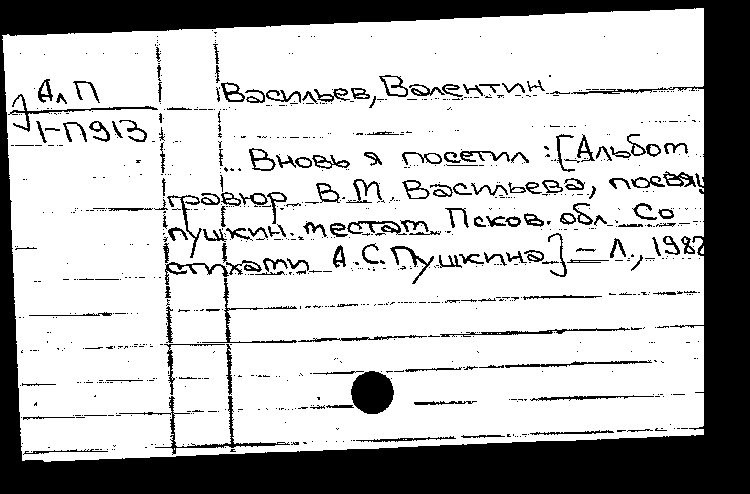 Ал П
1-П913
Васильев, Валентин.
... Вновь я посетил : [Альбом
гравюр В.М. Васильева, посвящ
пушкин. местам Псков. обл. Со
стихами А.С. Пушкина] – Л., 1982